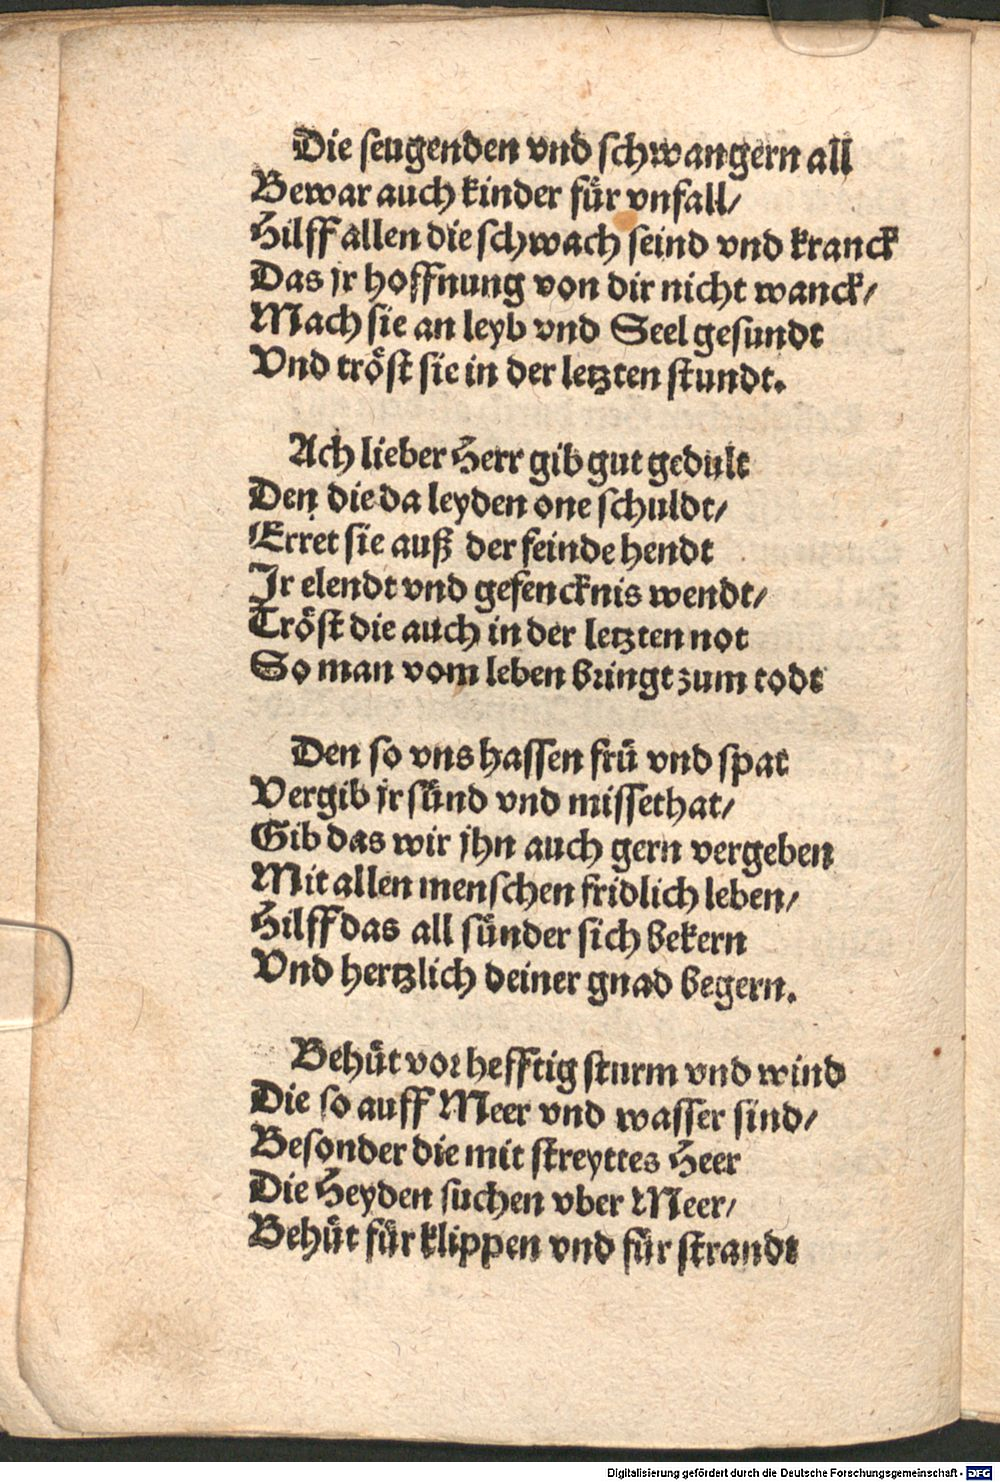 Die seugenden vnd schwangern all
Bewar auch kinder für vnfall/
Hilff allen die schwach seind vnd kranck
Das jr hoffnung von dir nicht wanck/
Mach sie an leyb vnd Seel gesundt
Vnd tröst sie in der letzten stundt.
Ach lieber Herr gib gut gedult
Den die da leyden one schuldt/
Erret sie auß der feinde hendt
Jr elendt vnd gefencknis wendt/
Tröst die auch in der letzten not
So man vom leben bringt zum todt
Den so vns hassen frü vnd spat
Vergib jr sünd vnd missethat/
Gib das wir jhn auch gern vergeben
Mit allen menschen fridlich leben/
Hilff das all sünder sich bekern
Vnd hertzlich deiner gnad begern.
Behüt vor hefftig sturm vnd wind
Die so auff Meer vnd wasser sind/
Besonder die mit streyttes Heer
Die Heyden suchen vber Meer/
Behüt für klippen vnd für strandt
Digitalisierung gefördert durch die Deutsche Forschungsgemeinschaft - DFG